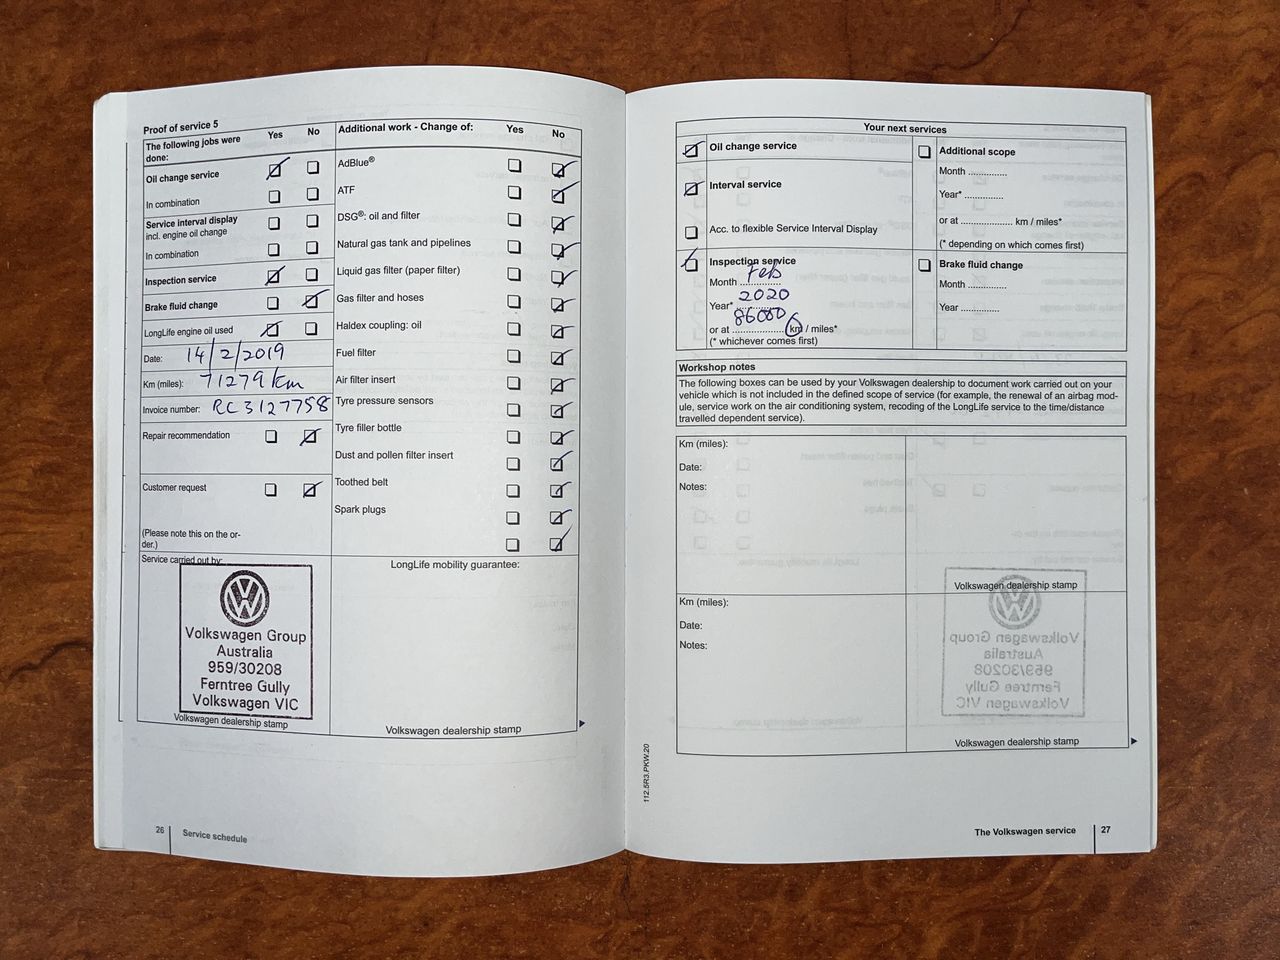 Proof of service 5
The following jobs were
done:
Yes
No
Oil change service
In combination
Service interval display
incl. engine oil change
In combination
Inspection service
Brake fluid change
LongLife engine oil used
Date: 14/2/2019
Km (miles): 71279 km
Invoice number: RC3127758
Repair recommendation
Customer request
(Please note this on the or-
der.)
Service carried out by:
Volkswagen Group
Australia
959/30208
Ferntree Gully
Volkswagen VIC
Volkswagen dealership stamp
Additional work - Change of:
Yes
No
AdBlue®
ATF
DSG®: oil and filter
Natural gas tank and pipelines
Liquid gas filter (paper filter)
Gas filter and hoses
Haldex coupling: oil
Fuel filter
Air filter insert
Tyre pressure sensors
Tyre filler bottle
Dust and pollen filter insert
Toothed belt
Spark plugs
LongLife mobility guarantee:
Volkswagen dealership stamp
26
Service schedule
Your next services
Oil change service
Interval service
Acc. to flexible Service Interval Display
Inspection service
Month Feb
Year* 2020
or at 86000 km / miles*
(* whichever comes first)
Additional scope
Month ..............
Year* ..............
or at .................. km / miles*
(* depending on which comes first)
Brake fluid change
Month ..............
Year ..............
Workshop notes
The following boxes can be used by your Volkswagen dealership to document work carried out on your
vehicle which is not included in the defined scope of service (for example, the renewal of an airbag mod-
ule, service work on the air conditioning system, recoding of the LongLife service to the time/distance
travelled dependent service).
Km (miles):
Date:
Notes:
Volkswagen dealership stamp
Km (miles):
Date:
Notes:
Volkswagen dealership stamp
112.5R3.PKW.20
The Volkswagen service
27